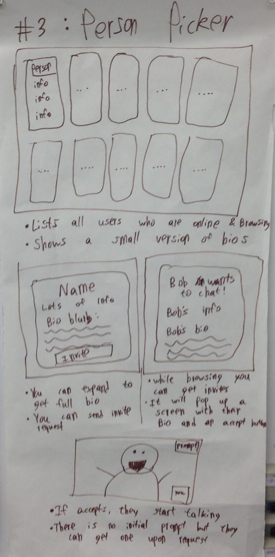 #3 : Person Picker
Person
info
info
info
....
....
....
....
....
....
....
....
....
• Lists all users who are online & Browsing
• Shows a small version of bios
Name
Lots of info
Bio blurb:
Invite
• You can expand to
get full bio
• You can send invite
request
Bob wants
to chat!
Bob's info
Bob's bio
• while browsing you
can get invites
• It will pop up a
screen with their
Bio and an accept button
prompt
me
• If accepts, they start talking
• There is no initial prompt but they
can get one upon request